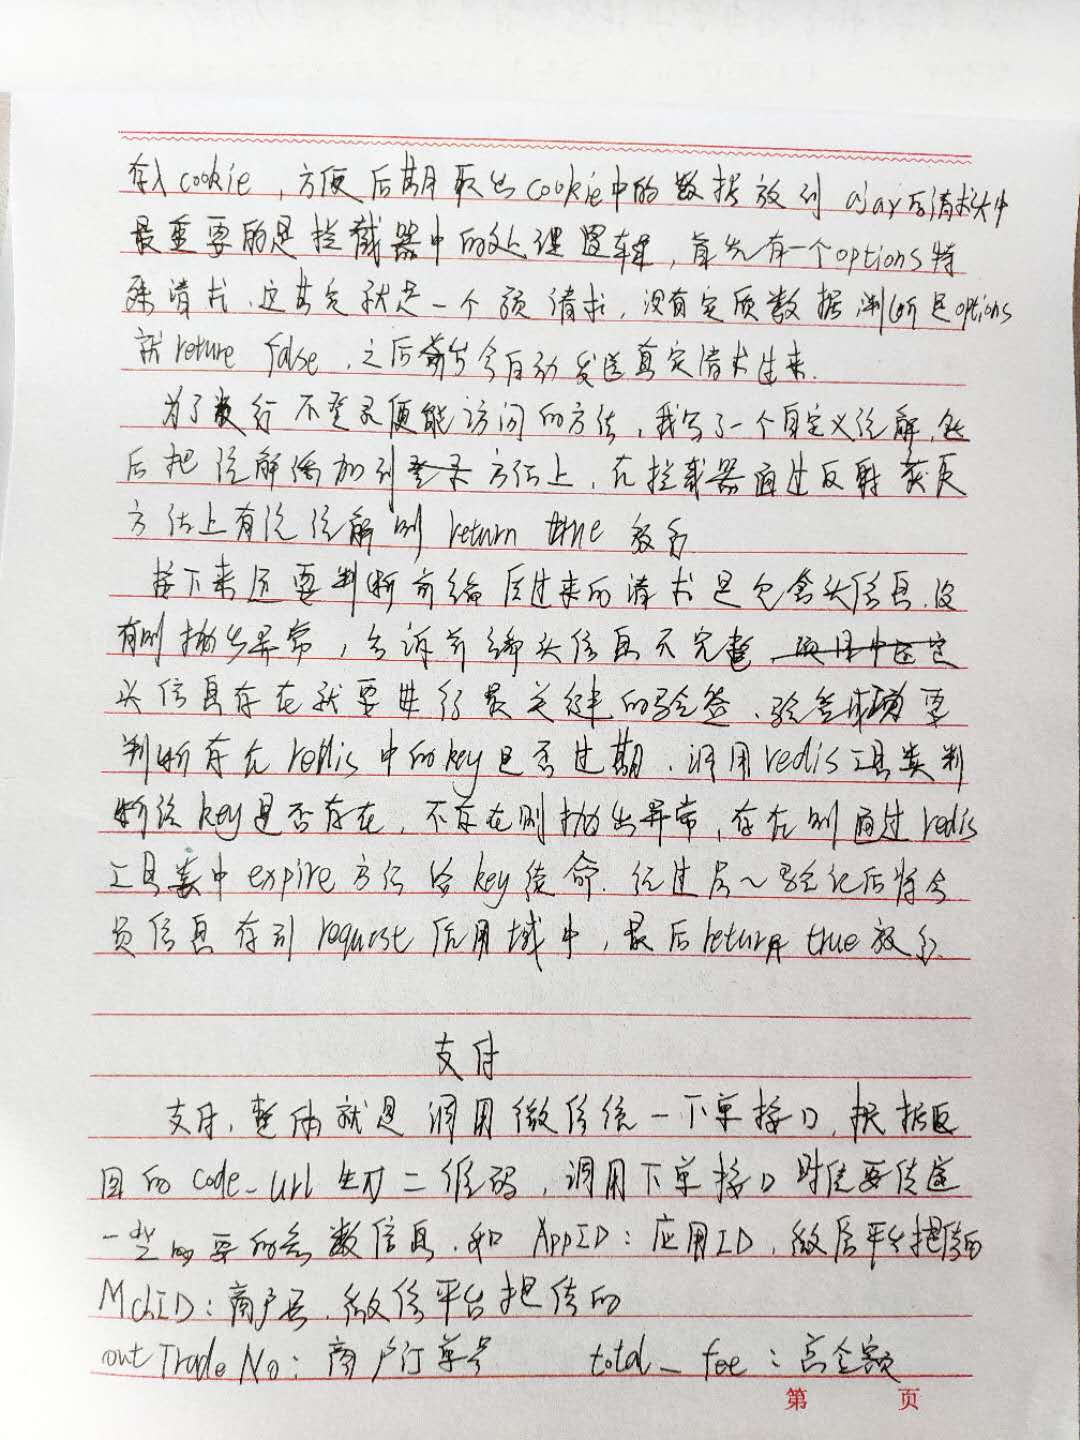 存入cookie，方便后期取出cookie中的数据放到ajax的请求头中
最重要的是拦截器中的处理逻辑，首先有一个options特
殊请求，这其实就是一个预请求，没有实质数据，判断是options
就reture false，之后前台会自动发送真实请求过来.
为了放行不登录便能访问的方法，我写了一个自定义注解，然
后把注解添加到方法上，在拦截器通过反射获取
方法上有该注解则 return true 放行
接下来还要判断前端传过来的请求是包含头信息，没
有则抛出异常，告诉前端头信息不完整，
头信息存在就要进行最关键的验签，验签要
判断存在redis中的key是否过期，调用redis工具类判
断该key是否存在，不存在则抛出异常，存在则通过redis
工具类中expire方法给key续命. 经过层~验证后将会
员信息存到request作用域中，最后return true放行
支付
支付，整体就是调用微信统一下单接口，根据返
回的code_url生成二维码，调用下单接口时需要传递
一些必要的参数信息，如AppID：应用ID，微信平台提供的
MchID：商户号，微信平台提供的
outTradeNo：商户订单号 total_fee：总金额
第 页